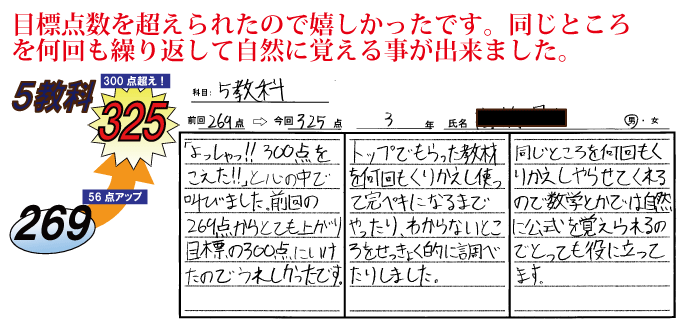 目標点数を超えられたので嬉しかったです。同じところ
を何回も繰り返して自然に覚える事が出来ました。
5教科
300点超え！
325
56点アップ
269
科目：5教科
前回269点 ⇨ 今回325点 3年 氏名 男・女
「よっしゃっ!! 300点を
こえた!!」と心の中で
叫びました。前回の
269点からとても上がり
目標の300点にいけ
たのでうれしかったです。
トップでもらった教材
を何回もくりかえし使っ
て完ぺきになるまで
やったり、わからないとこ
ろをせっきょく的に調べ
たりしました。
同じところを何回もく
りかえしやらせてくれる
ので数学とかでは自然
に公式を覚えられるの
でとっても役に立って
ます。